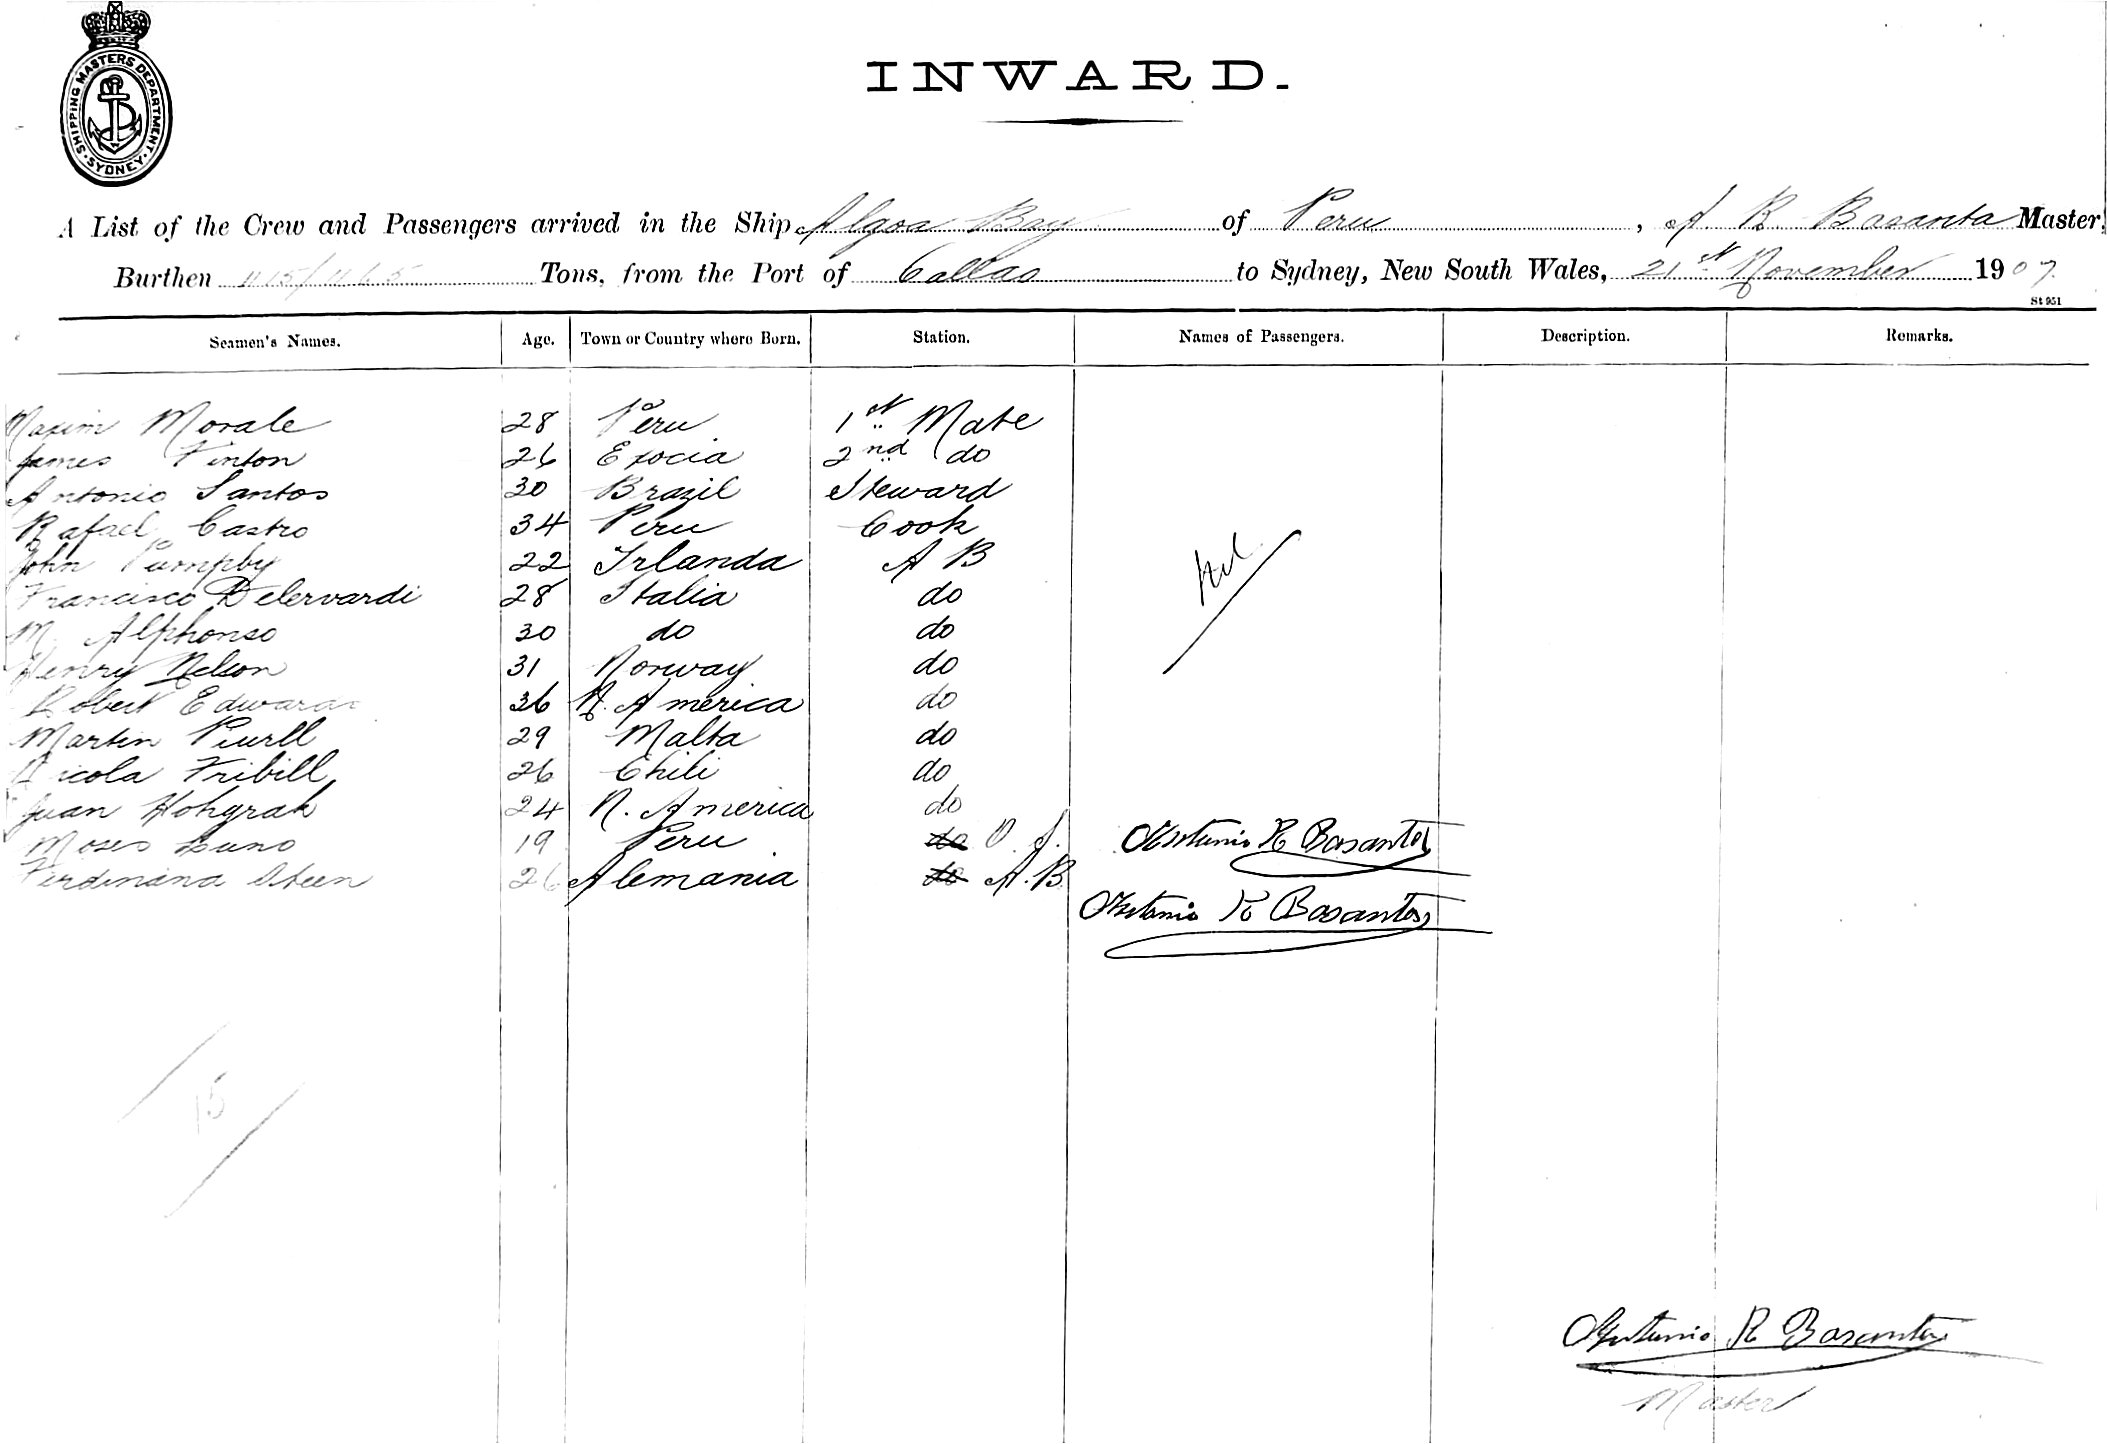 SHIPPING MASTERS DEPARTMENT
SYDNEY
INWARD.
A List of the Crew and Passengers arrived in the Ship Algoa Bay of Peru, A. R. Basanta Master,
Burthen Tons, from the Port of Callao to Sydney, New South Wales, 21st November 1907
St 951
Seamen's Names. Age. Town or Country where Born. Station. Names of Passengers. Description. Remarks.
Maxim Morale 28 Peru 1st Mate
James Finton 26 Exocia 2nd do
Antonio Santos 30 Brazil Steward
Rafael Castro 34 Peru Cook
John 22 Irlanda A B
Francisco Delervardi 28 Italia do
M. Alphonso 30 do do
Nil
Henry Nelson 31 Norway do
Robert Edwards 36 N. America do
Martin 29 Malta do
Nicola Fribill 26 Chili do
Juan Hohgrak 24 N. America do
Moses Luno 19 Peru do O. S. Antonio R Basanta
Ferdinand Steen 26 Alemania do A. B.
Antonio R Basanta
15
Antonio R Basanta
Master